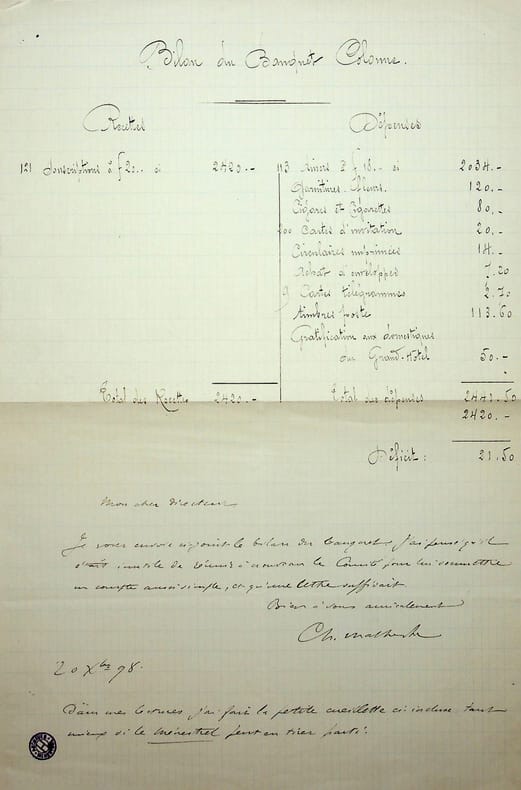 Bilan du Banquet Colonne.
Recettes
121 Inscriptions à f 20.. ci 2420.-
Total des Recettes 2420.-
Dépenses
113 diners à f 18.- ci 2034.-
Garnitures fleurs. 120.-
Cigares et Cigarettes 80.-
200 Cartes d'invitation 20.-
Circulaires imprimées 14.-
Achat d'enveloppes 7.20
9 Cartes télégrammes 2.70
timbres poste 113.60
Gratification aux domestiques
au Grand-Hôtel 50.-
Total des dépenses 2441.50
2420.-
Déficit: 21.50
Mon cher Directeur
Je vous envoie ci-joint le bilan du banquet. J'ai pensé qu'il
était inutile de réunir à nouveau le Comité pour lui soumettre
un compte aussi simple, et qu'une lettre suffirait.
Bien à vous amicalement
Ch. Malherbe
20 Xbre 98.
Dans mes courses, j'ai fait la petite cueillette ci-incluse. tant
mieux si le Ménestrel peut en tirer parti.